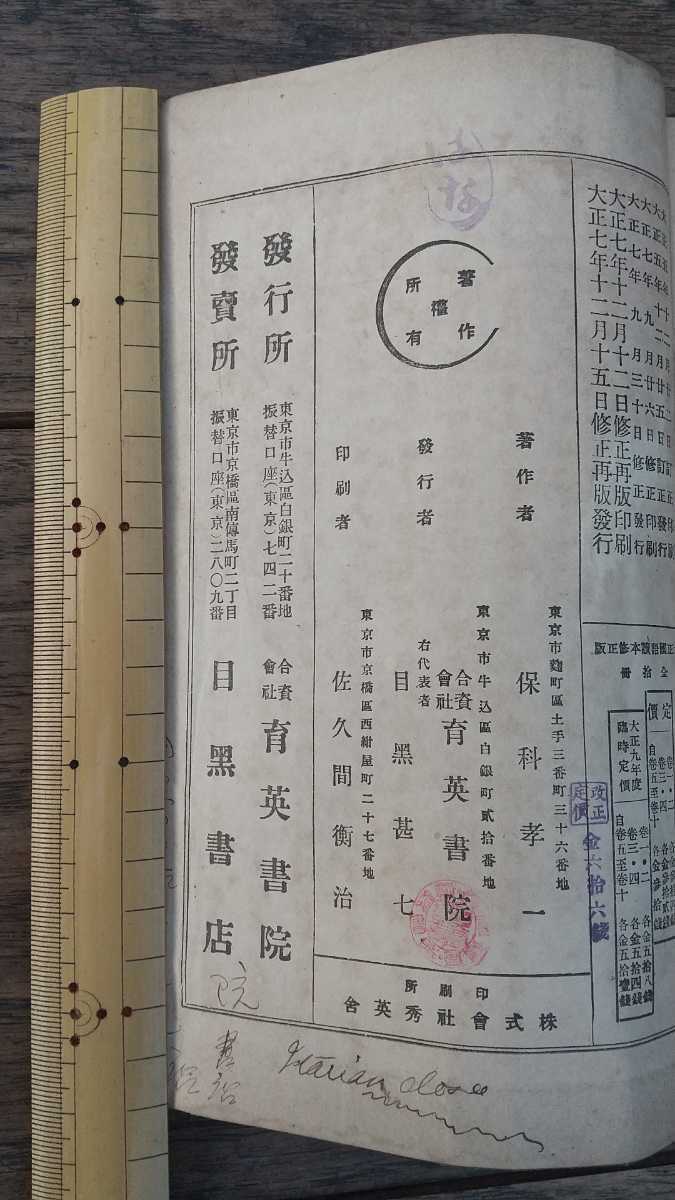 大正七年九月廿六日修正印刷
大正七年九月三十日修正發行
大正七年十二月十二日修正再版印刷
大正七年十二月十五日修正再版發行
本修正版
全拾冊
定價
卷一・二
卷三・四
自卷五至卷十
大正九年度
臨時定價
卷一・二 各金五拾八錢
卷三・四 各金五拾四錢
自卷五至卷十 各金五拾壹錢
改正
定價
金六拾六錢
著作
權
所有
著作者
東京市麴町區土手三番町三十六番地
保科孝一
發行者
東京市牛込區白銀町貳拾番地
合資會社 育英書院
右代表者
目黑甚七
印刷者
東京市京橋區西紺屋町二十七番地
佐久間衡治
印刷所
株式會社秀英舍
發行所
東京市牛込區白銀町二十番地
振替口座(東京)七四二番
合資會社 育英書院
發賣所
東京市京橋區南傳馬町二丁目
振替口座(東京)二八〇九番
目黑書店
院